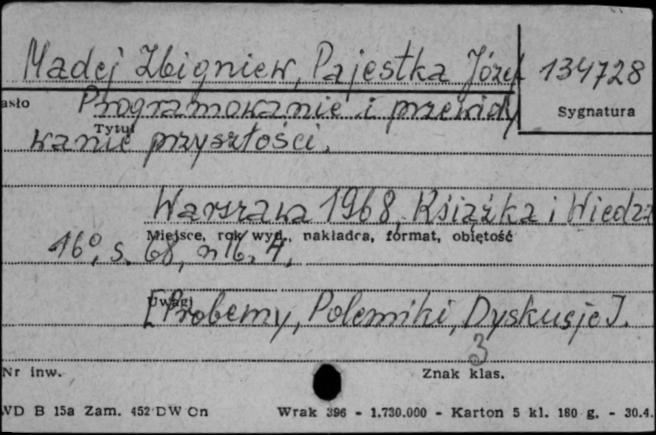 Madej Zbigniew, Pajestka Józef
134728
asło
Programowanie i przewidy
Sygnatura
Tytuł
wanie przyszłości.
Warszawa 1968, Książka i Wiedza
Miejsce, rok wyd., nakładca, format, objętość
16°, s. 68, n
Uwagi
[Probemy, Polemiki, Dyskusje].
3
Nr inw.
Znak klas.
WD B 15a Zam. 452 DW On
Wrak 396 - 1.730.000 - Karton 5 kl. 180 g. - 30.4.